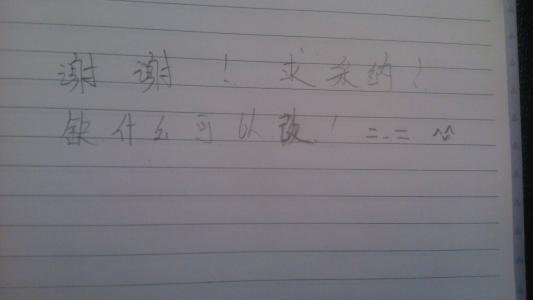 谢谢！求采纳！
缺什么可以改！=.= ^^